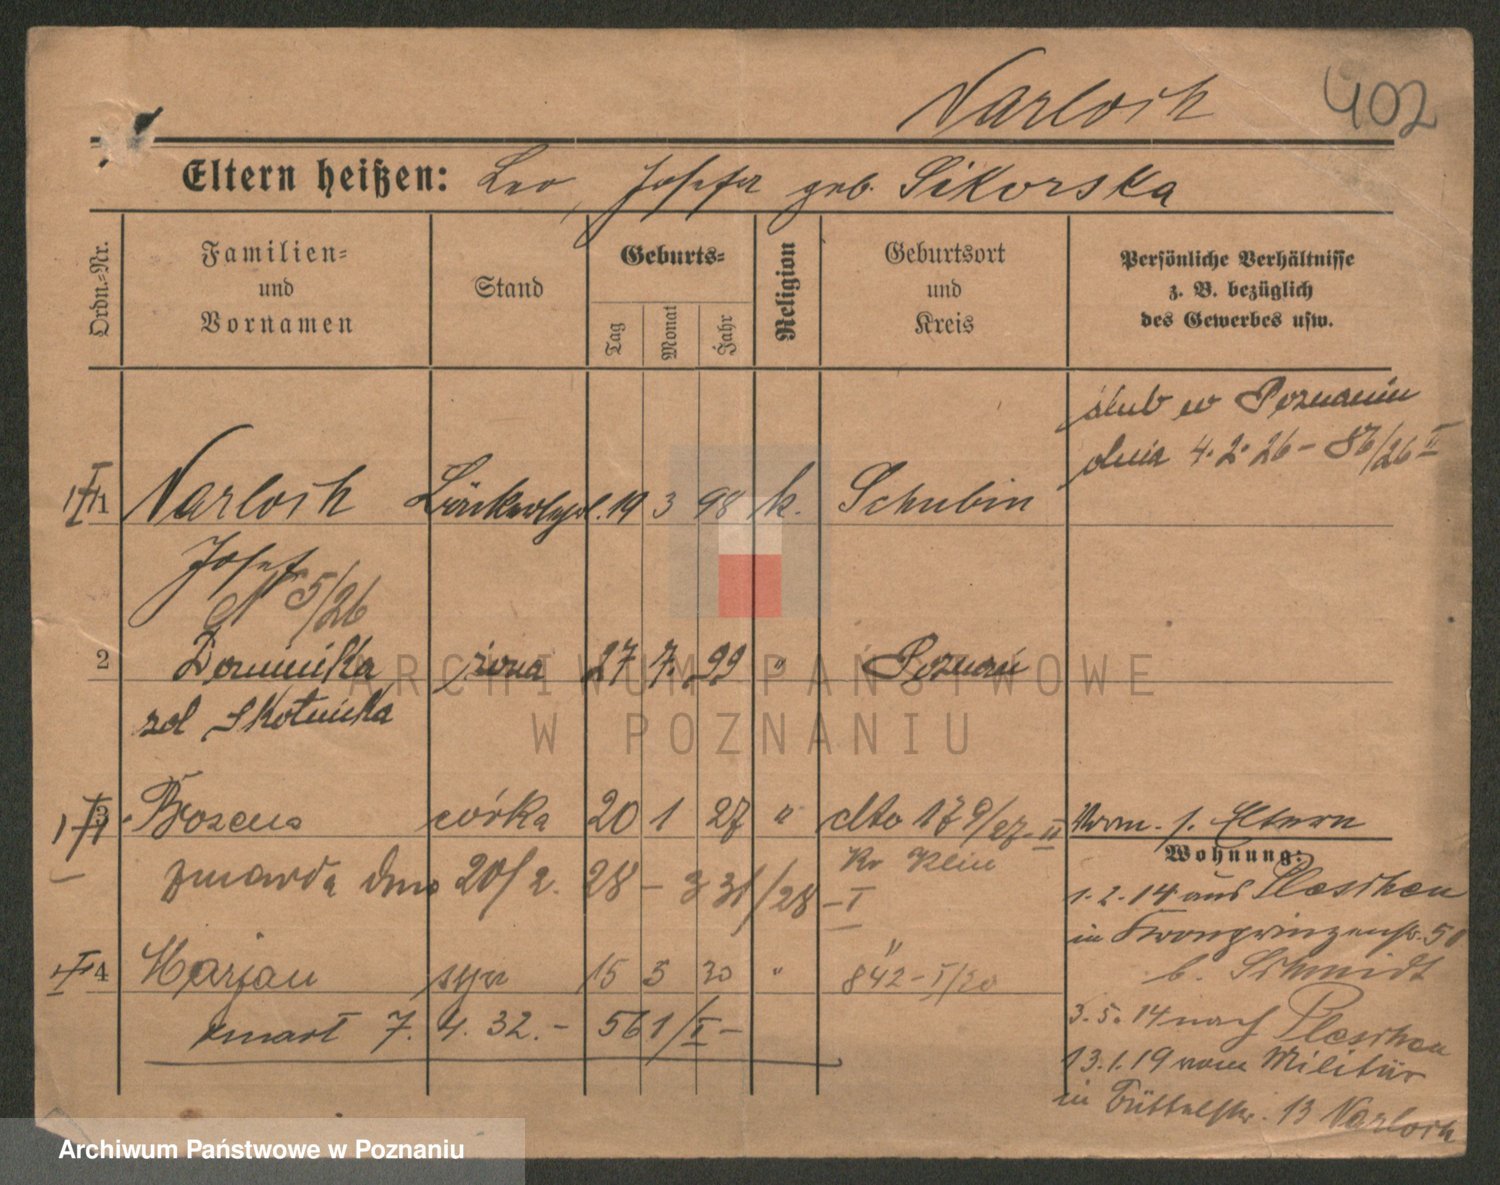 Narloch 402
Eltern heißen: Leo, Josefa geb. Sikorska
Ordn.-Nr.
Familien- und Vornamen
Stand
Geburts-
Tag
Monat
Jahr
Religion
Geburtsort und Kreis
Persönliche Verhältnisse z. B. bezüglich des Gewerbes usw.
ślub w Poznaniu
dnia 4. 2. 26 – 86/26 II
1 Narloch 19 3 98 k. Schubin
Josef
N 5/26
2 Dominika żona 27 7. 99 " Poznań
zd Skotnicka
3 Bożena córka 20 1 27 " dto 179/27-II
Vorm. s. Eltern
zmarła dnia 20/2. 28 – 331/28 – I
Wohnung:
1.2.14 aus Pleschen
in Kronprinzenstr. 50
b. Schmidt
4 Marjan syn 15 5 30 " 842 – I/30
zmarł 7. 4. 32. – 561/I –
3.5.14 nach Pleschen
13.1.19 vom Militär
in 13 Narloch
ARCHIWUM PAŃSTWOWE
W POZNANIU
Archiwum Państwowe w Poznaniu